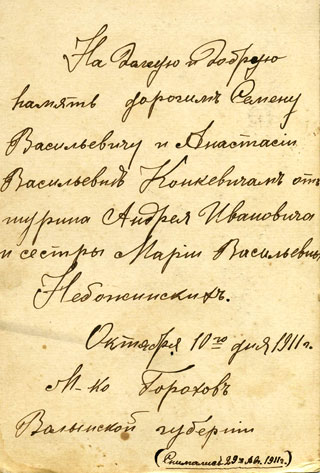 На долгую и добрую
память дорогимъ Семену
Васильевичу и Анастасіи
Васильевнѣ Конкевичамъ отъ
шурина Андрея Ивановича
и сестры Маріи Васильевны
Небожинскихъ.
Октября 10го дня 1911 г.
М-ко Гороховъ
Волынской губерніи
(Снимались 29го Ав. 1911 г.)